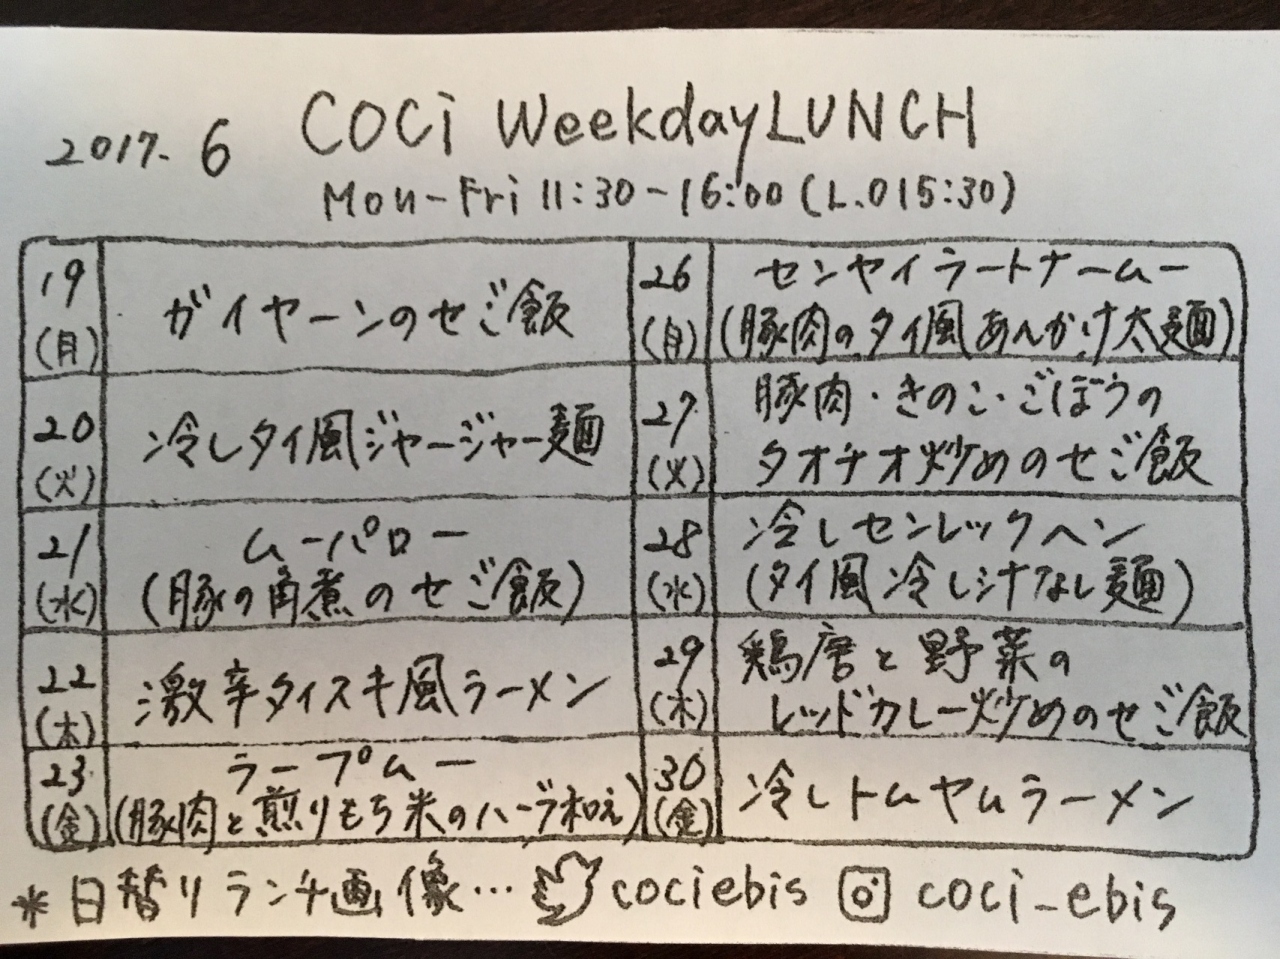 2017. 6 COCi WeekdayLUNCH
Mon-Fri 11:30-16:00 (L.O15:30)
19
(月)
ガイヤーンのせご飯
20
(火)
冷しタイ風ジャージャー麺
21
(水)
ムーパロー
(豚の角煮のせご飯)
22
(木)
激辛タイスキ風ラーメン
23
(金)
ラープムー
(豚肉と煎りもち米のハーブ和え)
26
(月)
センヤイラートナームー
(豚肉のタイ風あんかけ太麺)
27
(火)
豚肉・きのこ・ごぼうの
タオチオ炒めのせご飯
28
(水)
冷しセンレックヘン
(タイ風冷し汁なし麺)
29
(木)
鶏唐と野菜の
レッドカレー炒めのせご飯
30
(金)
冷しトムヤムラーメン
*日替りランチ画像… cociebis coci_ebis